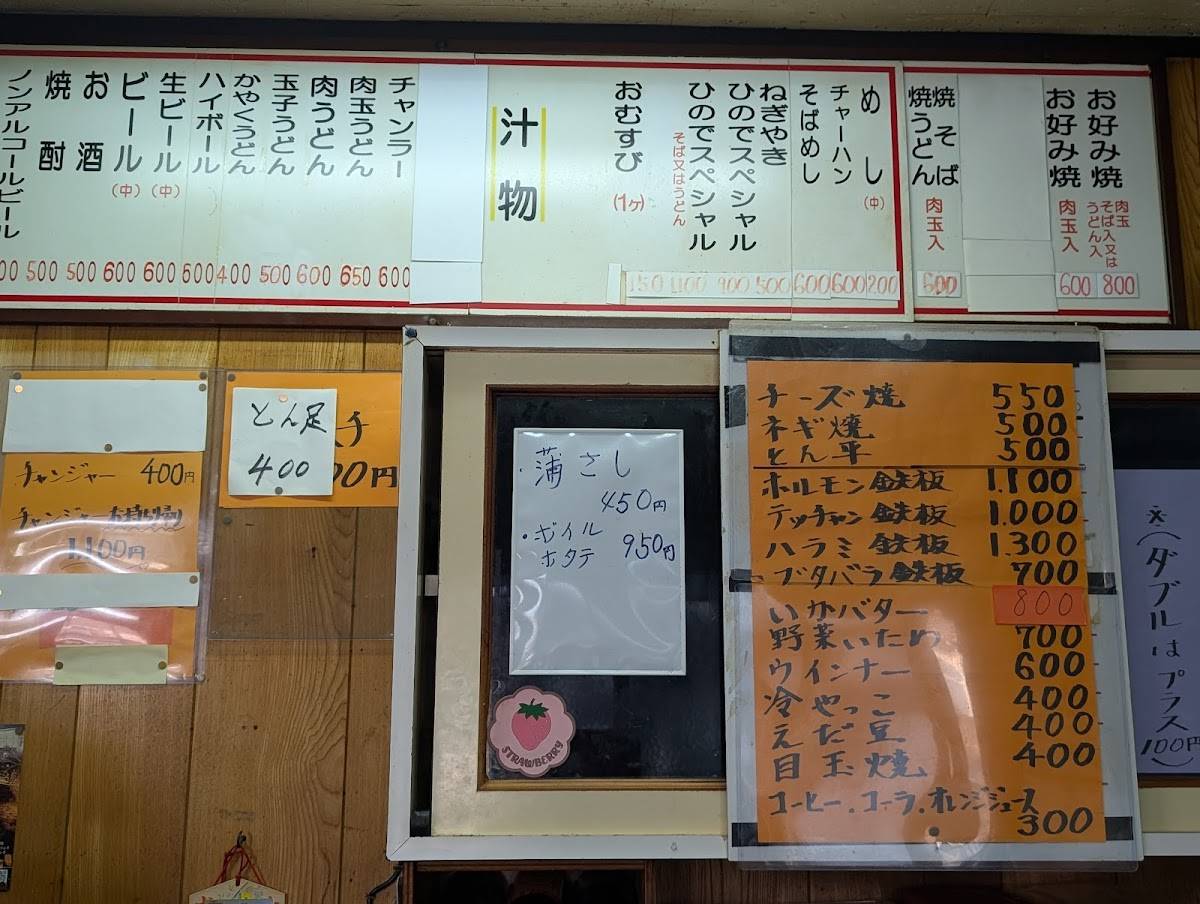 お好み焼 肉玉 そば入又は うどん入 800
お好み焼 肉玉入 600
焼そば
焼うどん 肉玉入 600
めし (中) 200
チャーハン 600
そばめし 600
ねぎやき 500
ひのでスペシャル 900
ひのでスペシャル そば又はうどん 1,100
おむすび (1ヶ) 150
汁物
チャンラー 600
肉玉うどん 650
肉うどん 600
玉子うどん 500
かやくうどん 400
ハイボール 600
生ビール (中) 600
ビール (中) 600
お酒 500
焼酎 500
ノンアルコールビール
チャンジャー 400円
チャンジャー
1,100円
とん足
400
チ
00円
蒲さし
450円
・ボイル
ホタテ 950円
STRAWBERRY
チーズ焼 550
ネギ焼 500
とん平 500
ホルモン鉄板 1.100
テッチャン鉄板 1.000
ハラミ鉄板 1.300
ブタバラ鉄板 700
いかバター 800
野菜いため 700
ウインナー 600
冷やっこ 400
えだ豆 400
目玉焼 400
コーヒー.コーラ.オレンジジュース
300
※(ダブルはプラス100円)